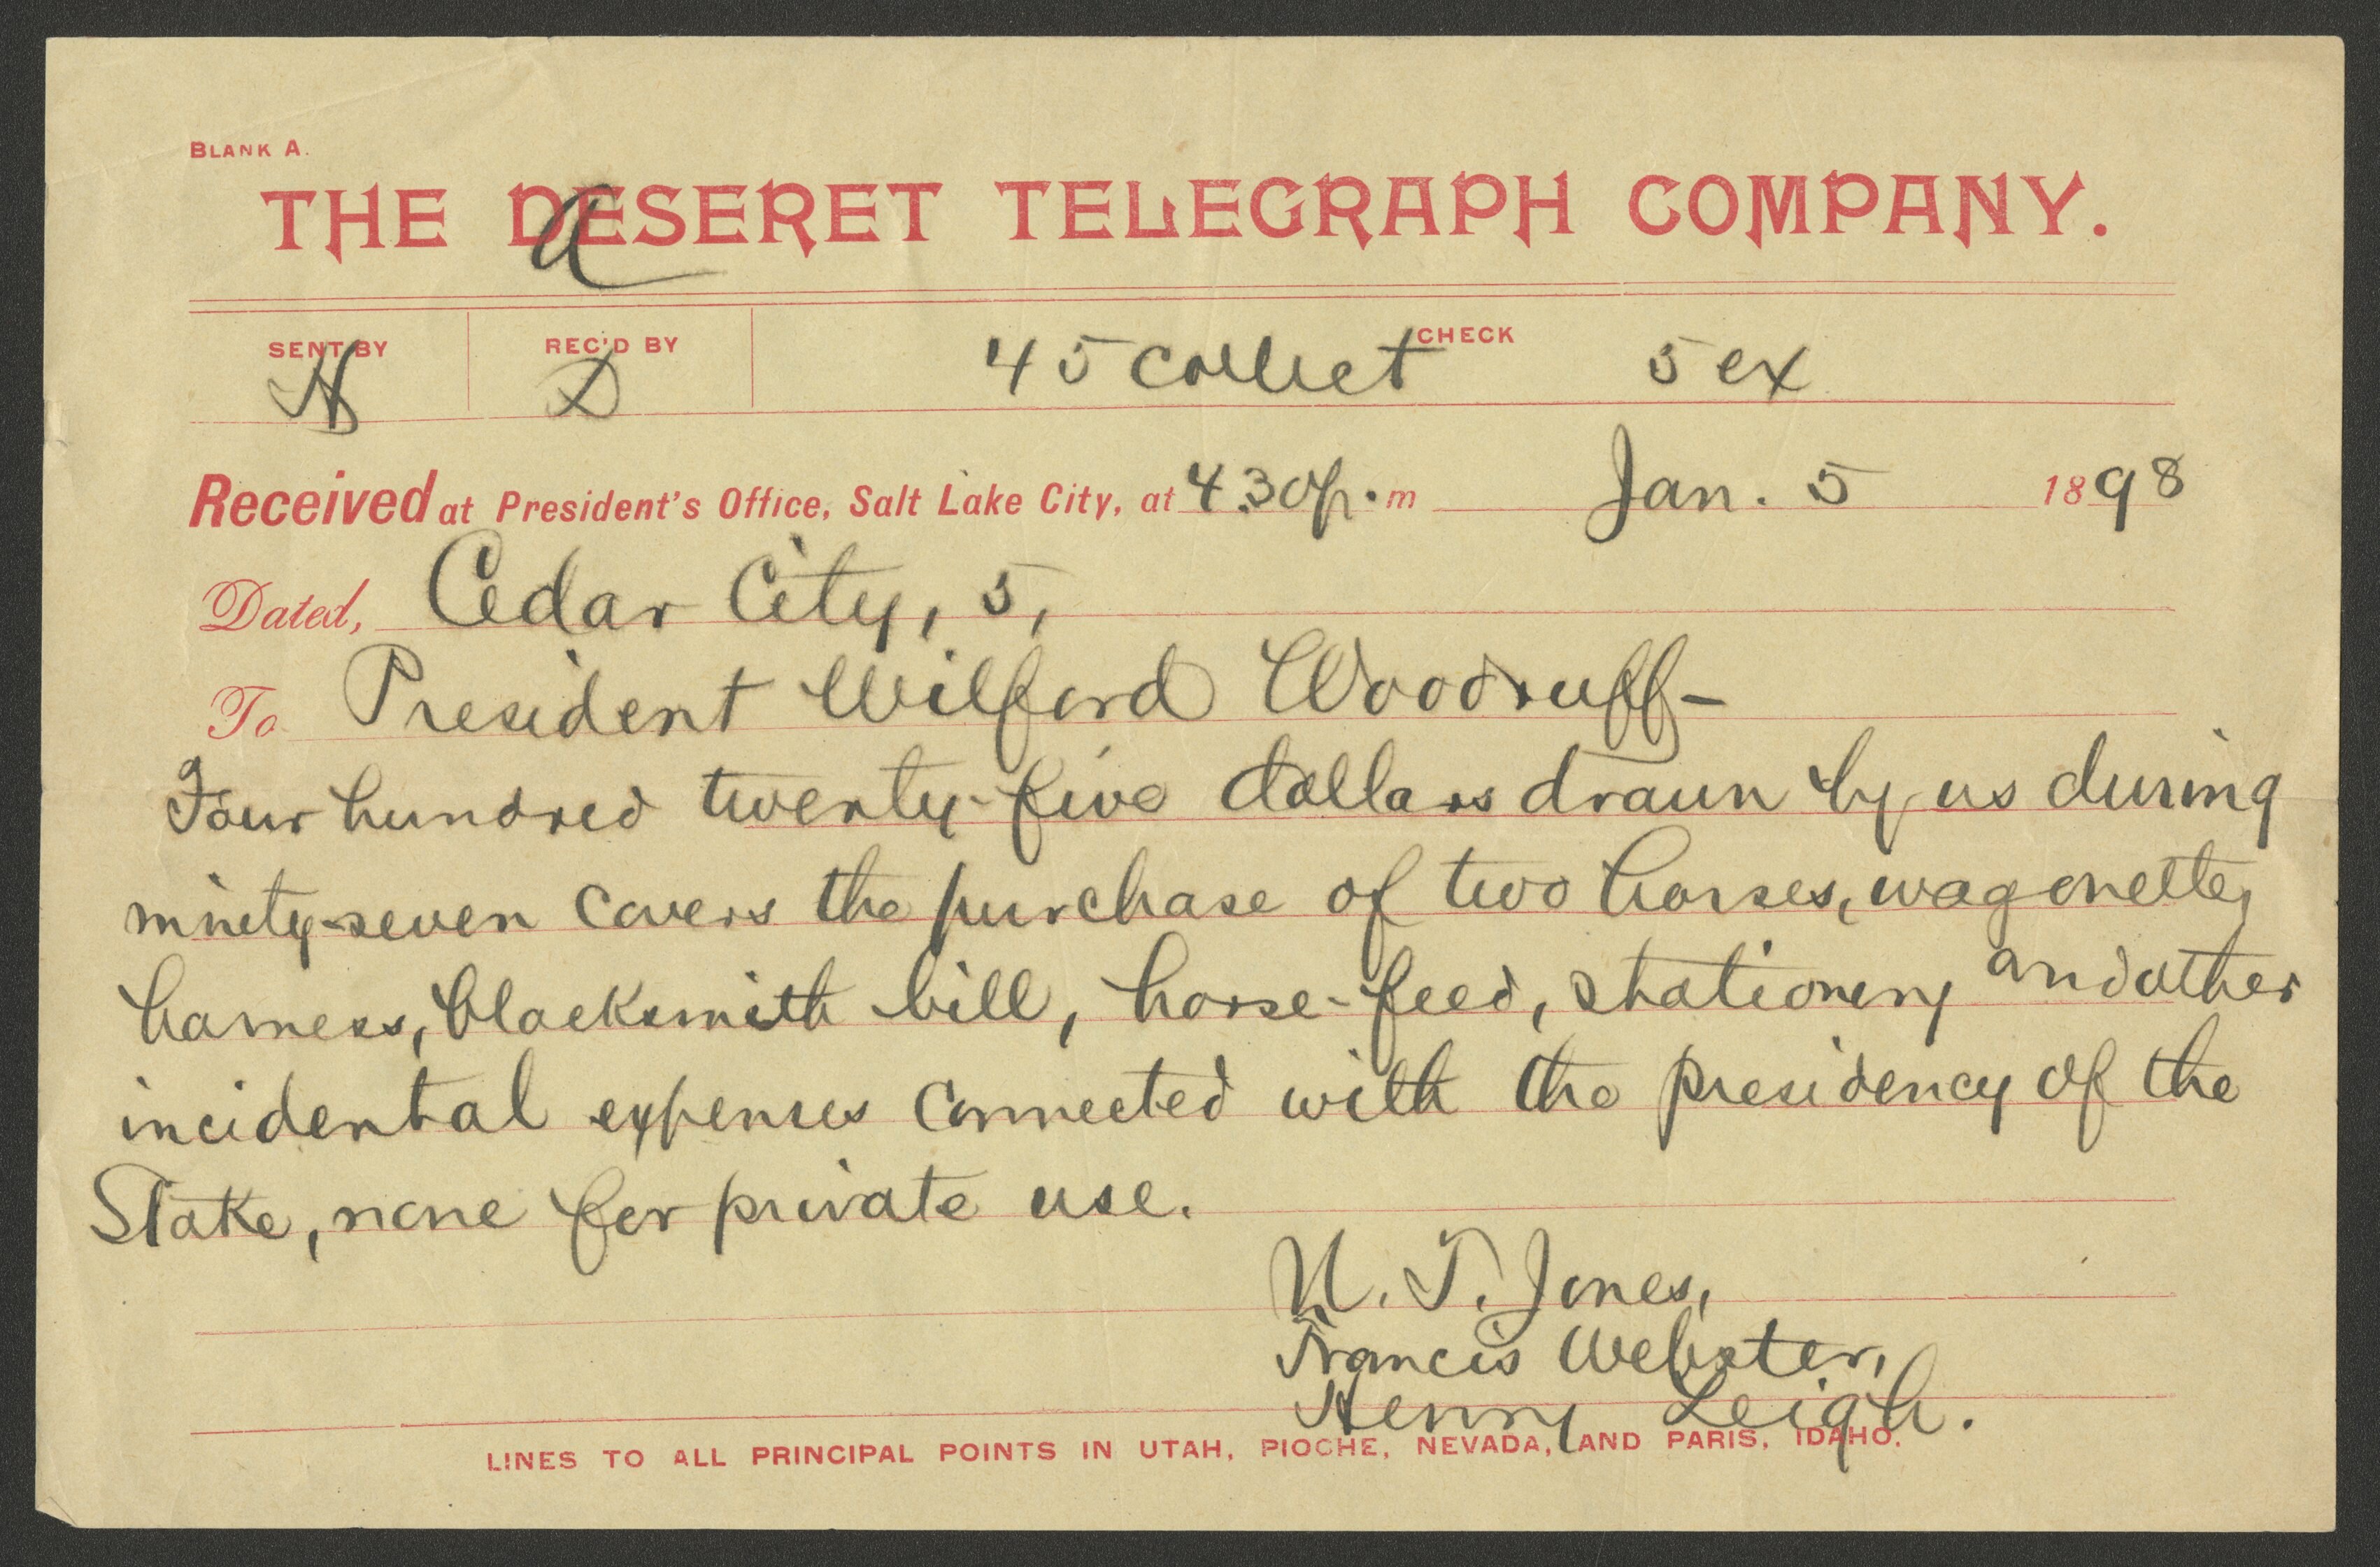 BLANK A.
THE DESERET TELEGRAPH COMPANY.
a
SENT BY REC'D BY CHECK
N D 45 collect 5 ex
Received at President's Office, Salt Lake City, at 4.30 p.m Jan. 5 1898
Dated, Cedar City, 5,
To President Wilford Woodruff-
Four hundred twenty-five dollars drawn by us during
ninety-seven covers the purchase of two horses, wagonette,
harness, blacksmith bill, horse-feed, stationery and other
incidental expenses connected with the presidency of the
Stake, none for private use.
U. T. Jones,
Francis Webster,
Henry Leigh.
LINES TO ALL PRINCIPAL POINTS IN UTAH, PIOCHE, NEVADA, AND PARIS, IDAHO.